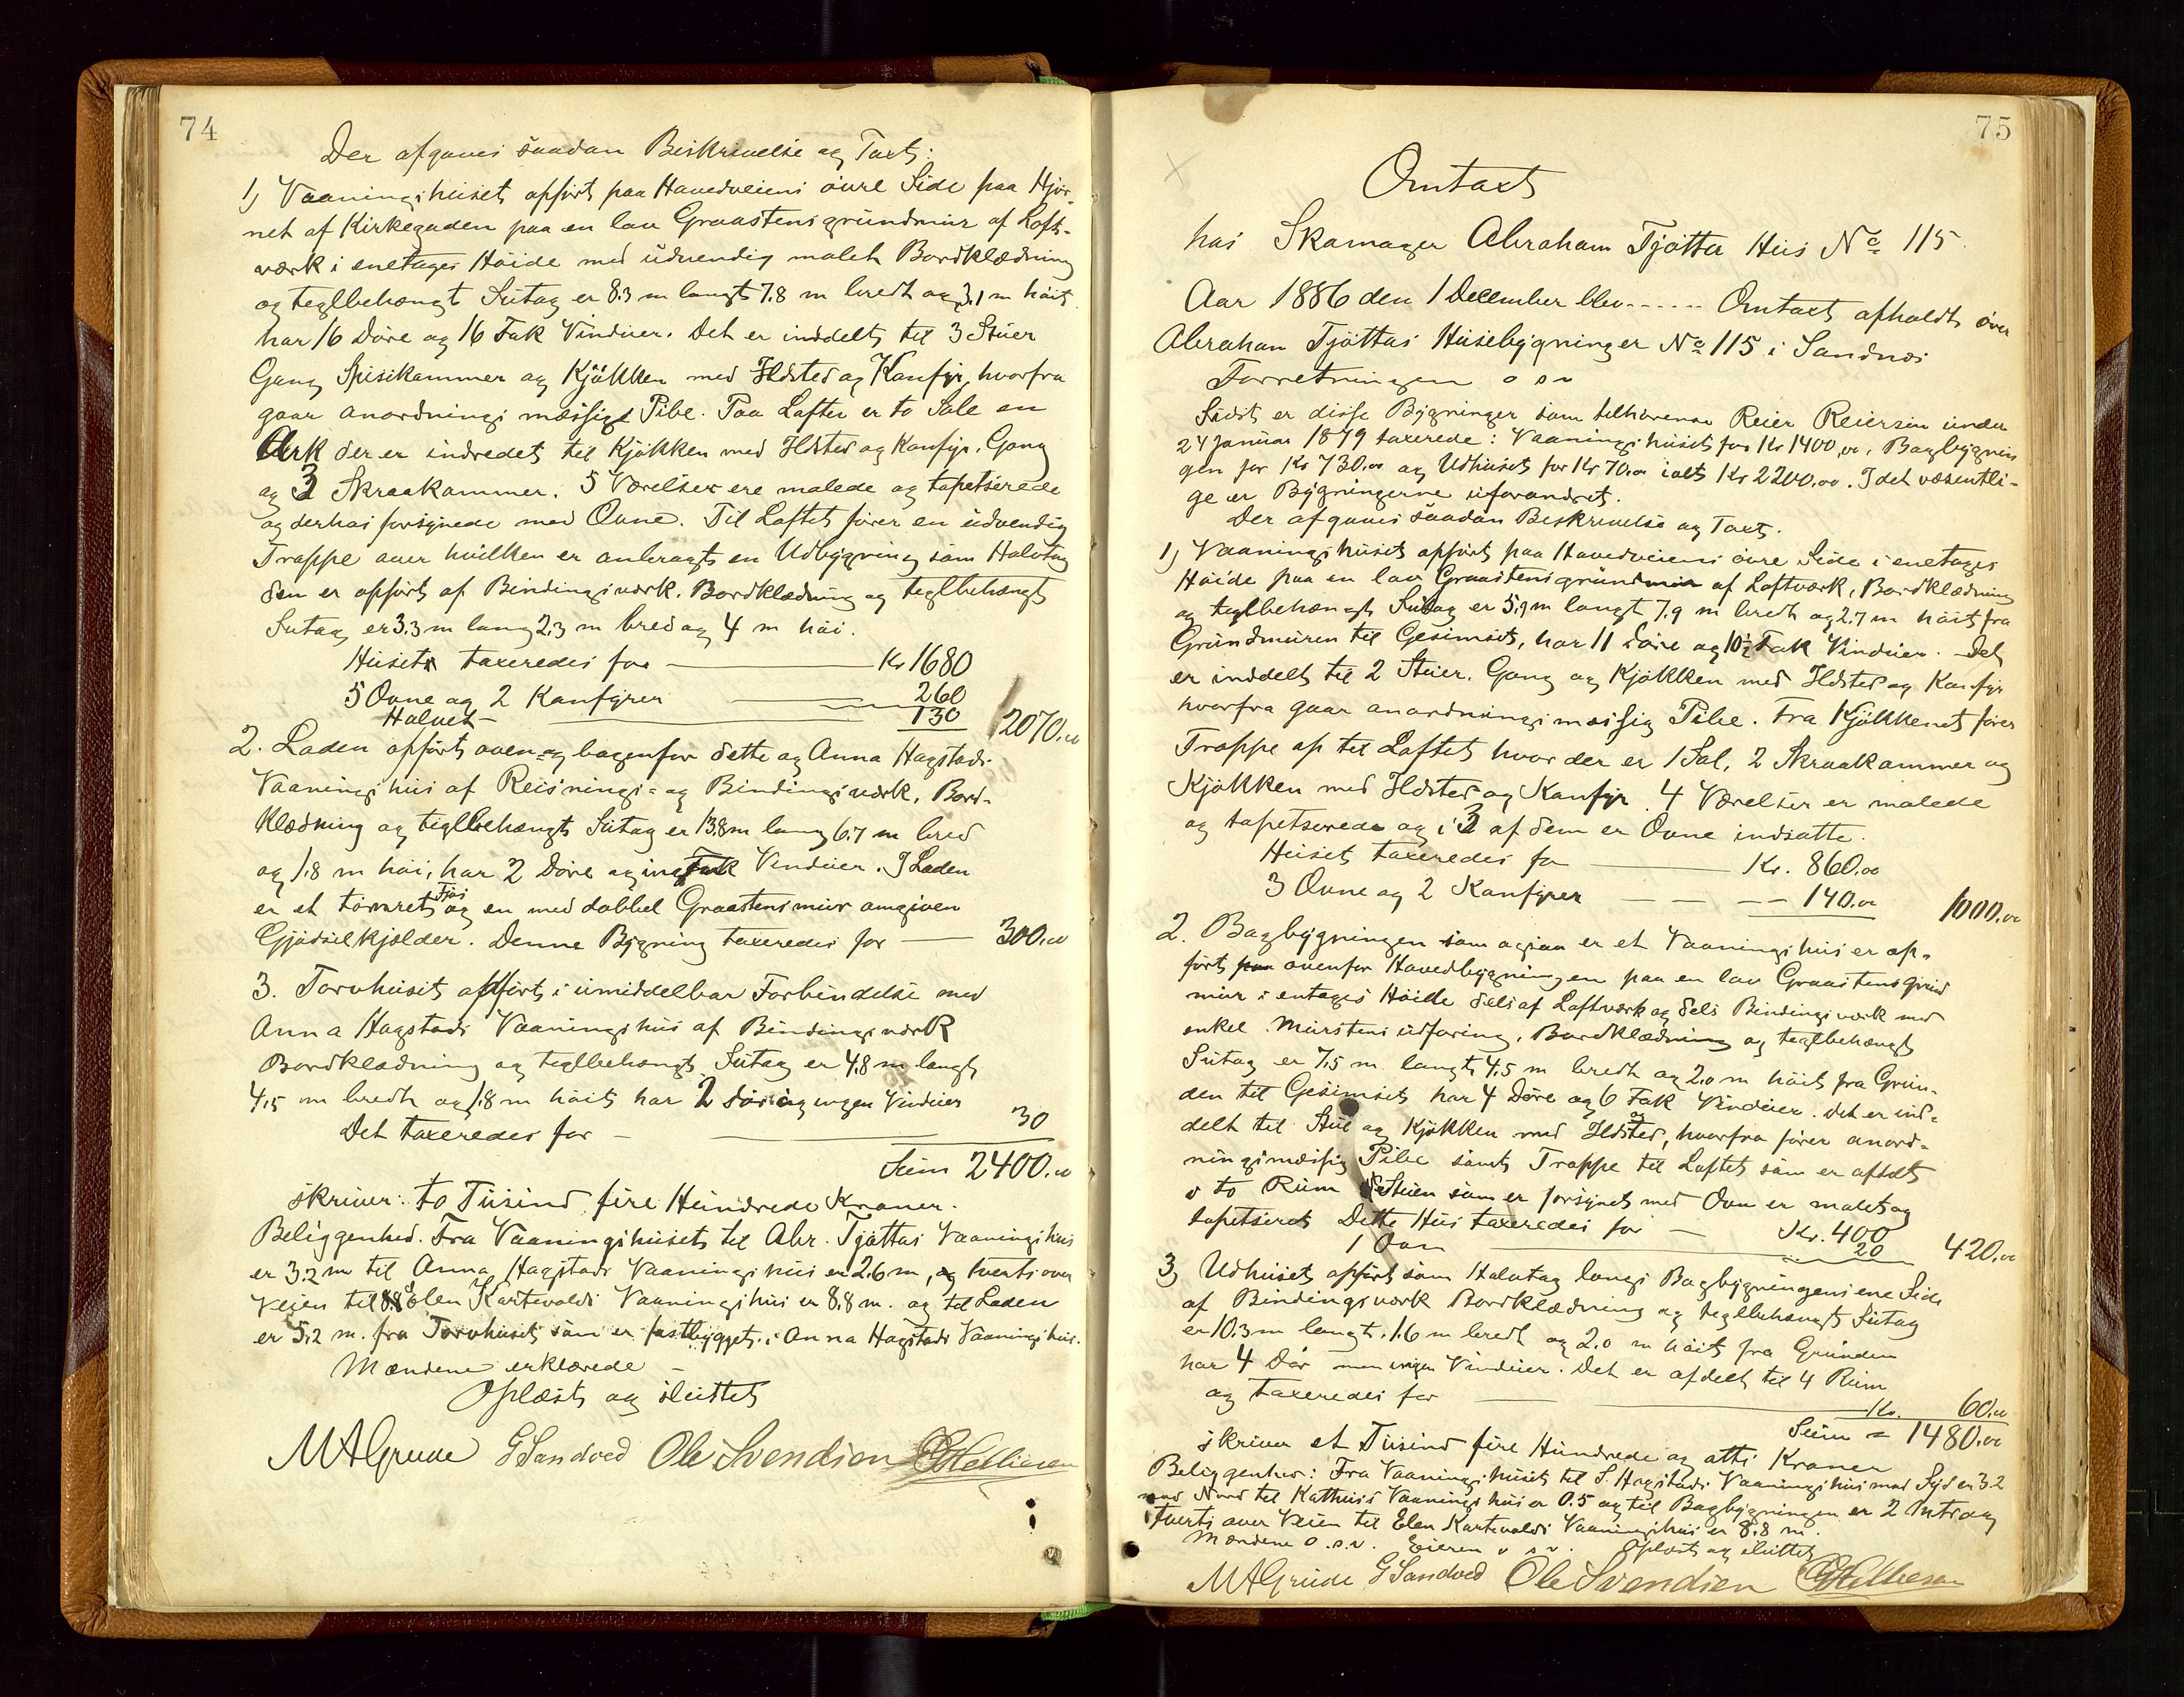 74
Der afgaves saadan Beskrivelse og Taxt:
1) Vaaningshuset opført paa Hovedveiens øvre Side paa Hjør-
net af Kirkegaden paa en lav Graastensgrundmur af Loft-
værk i enetages Høide med udvendig malet Bordklædning
og teglbehængt Sutag er 8.3 m langt 7.8 m bredt og 3.1 m høit
har 16 Døre og 16 Fak Vinduer. Det er inddelt til 3 Stuer
Gang Spisekammer og Kjøkken med Ildsted og Komfyr, hvorfra
gaar anordningsmæssige Pibe. Paa Loftet er to Sale en
Ark der er indredet til Kjøkken med Ildsted og Komfyr, Gang
og 3 Skraakammer. 5 Værelser ere malede og tapetserede
og derhos forsynede med Ovne. Til Loftet fører en udvendig
Trappe over hvilken er anbragt en Udbygning som Halvtag
den er opført af Bindingsværk. Bordklædning og teglbehængt
Sutag er 3.3 m lang 2.3 m bred og 4 m høi.
Huset taxeredes for — Kr 1680
5 Ovne og 2 Komfyrer — 260
Halvet — 130 2070.00
2. Laden opført oven og bagenfor dette og Anna Hagstads
Vaaningshus af Reisnings- og Bindingsværk, Bord-
klædning og teglbehængt Sutag er 13.8 m lang 6.7 m bred
og 1.8 m høi, har 2 Døre og ingen Vinduer. I Laden
er et tømret Fjøs og en med dobbel Graastensmur omgiven
Gjødselkjælder. Denne Bygning taxeredes for — 300.00
3. Torvhuset opført i umiddelbar Forbindelse med
Anna Hagstads Vaaningshus af Bindingsværk
Bordklædning og teglbehængt Sutag er 4.8 m langt
4.5 m bredt og 1.8 m høit har 2 Døre og ingen Vinduer
Det taxeredes for — 30
Sum 2400.00
skriver: to Tusind fire Hundrede Kroner.
Beliggenhed. Fra Vaaningshuset til Abr. Tjøttas Vaaningshus
er 3.2 m til Anna Hagstads Vaaningshus er 2.6 m, og tverts over
Veien til Elen Kartevolds Vaaningshus er 8.8 m. og til Laden
er 5.2 m. fra Torvhuset som er fastbygget i Anna Hagstads Vaaningshus.
Mændene erklærede —
Oplæst og sluttet
M A Grude G Sandved Ole Svendsen
75
Omtaxt
hos Skomager Abraham Tjøtta Hus No 115
Aar 1886 den 1 December blev...... Omtaxt afholdt over
Abraham Tjøttas Husebygninger No 115 i Sandnes
Forretningen o s v
Sidst er disse Bygninger som tilhørende Reier Reiersen under
24 Januar 1879 taxerede: Vaaningshuset for Kr 1400,00, Bagbygnin
gen for Kr 730.00 og Udhuset for Kr 70.00 ialt Kr 2200.00. I det væsentli-
ge er Bygningerne uforandret.
Der afgaves saadan Beskrivelse og Taxt.
1) Vaaningshuset opført paa Hovedveiens øvre Side i enetages
Høide paa en lav Graastensgrundmur af Loftværk, Bordklædning
og teglbehængt Sutag er 5.9 m langt 7.9 m bredt og 2.7 m høit fra
Grundmuren til Gesimset, har 11 Døre og 10½ Fak Vinduer. Det
er inddelt til 2 Stuer, Gang og Kjøkken med Ildsted og Komfyr
hvorfra gaar anordningsmæssig Pibe. Fra Kjøkkenet fører
Trappe op til Loftet hvor der er 1 Sal, 2 Skraakammer og
Kjøkken med Ildsted og Komfyr. 4 Værelser er malede
og tapetserede og i 3 af dem er Ovne indsatte.
Huset taxeredes for — Kr. 860.00
3 Ovne og 2 Komfyrer — — — 140.00 1000.00
2. Bagbygningen som ogsaa er et Vaaningshus er op-
ført ovenfor Hovedbygningen paa en lav Graastensgrund
mur i enetages Høide dels af Loftværk og dels Bindingsværk med
enkel Murstens udforing, Bordklædning og teglbehængt
Sutag er 7.5 m langt 4.5 m bredt og 2.0 m høit fra Grun-
den til Gesimset har 4 Døre og 6 Fak Vinduer. Det er ind-
delt til Stue og Kjøkken med Ildsted, hvorfra fører anord-
ningsmæssig Pibe samt Trappe til Loftet som er afdelt
i to Rum Stuen som er forsynet med Ovn er malet og
tapetseret Dette Hus taxeredes for — Kr. 400
1 Ovn — 20 420.00
3) Udhuset opført som Halvtag langs Bagbygningens ene Side
af Bindingsværk Bordklædning og teglbehængt Sutag
er 10.3 m langt, 1.6 m bredt og 2.0 m høit fra Grunden
har 4 Dør men ingen Vinduer. Det er afdelt til 4 Rum
og taxeredes for — Kr. 60.00
Sum = 1480.00
skriver et Tusind fire Hundrede og otti Kroner
Beliggenhed: Fra Vaaningshuset til S. Hagstads Vaaningshus mod Syd er 3.2
mod Nord til Vaaningshus er 0.5 og til Bagbygningen er 2 Mtr og
tverts over Veien til Elen Kartevolds Vaaningshus er 8.8 m.
Mændene o.s.v. Eieren o s v. Oplæst og sluttet
M A Grude G Sandved Ole Svendsen